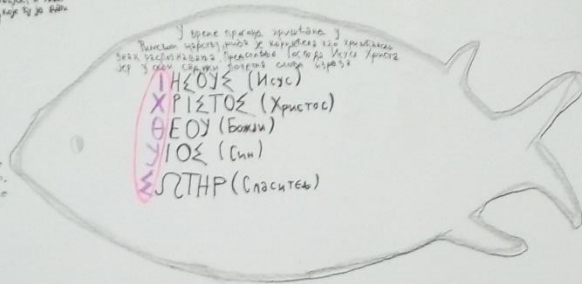 у време прогона хришћана у
Римском царству, риба је коришћена као хришћански
знак распознавања. Представља Господа Исуса Христа
јер у свом садржи почетна слова израза
ΙΗΣΟΥΣ (Исус)
ΧΡΙΣΤΟΣ (Христос)
ΘΕΟΥ (Божји)
ΥΙΟΣ (Син)
ΣΩΤΗΡ (Спаситељ)